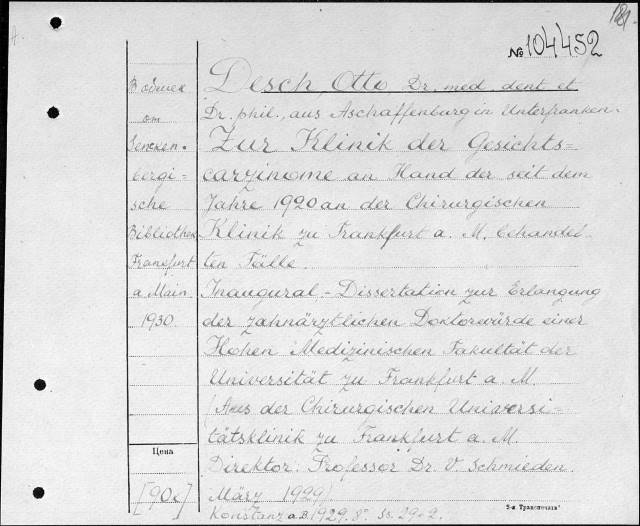 181.
№ 104452
Desch, Otto Dr. med. dent et
Dr. phil., aus Aschaffenburg in Unterfranken.
Zur Klinik der Gesichts=
carzinome an Hand der seit dem
Jahre 1920 an der Chirurgischen
Klinik zu Frankfurt a. M. behandel-
ten Fälle.
Inaugural-Dissertation zur Erlangung
der zahnärztlichen Doktorwürde einer
Hohen Medizinischen Fakultät der
Universität zu Frankfurt a. M.
(Aus der Chirurgischen Universi=
tätsklinik zu Frankfurt a. M.
Direktor: Professor Dr. V. Schmieden.
März 1929)
Konstanz a.B. 1929. 8° Ss. 29+2.
В обмен
от
Sencken-
bergi-
sche
Bibliothek
Frankfurt
a Main
1930.
Цена
[90к]
5-я Транспечать